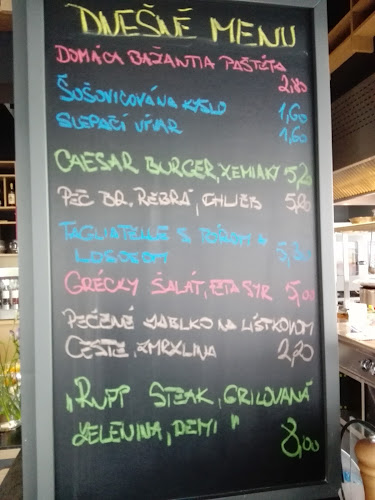 DNEŠNÉ MENU
DOMÁCA BAŽANTIA PAŠTÉTA
2,80
ŠOŠOVICOVÁ NA KYSLO 1,60
SLEPAČÍ VÝVAR 1,60
CAESAR BURGER, ZEMIAKY 5,20
PEČ. BR. REBRÁ, CHLIEB 5,20
TAGLIATELLE S PÓROM A
LOSOSOM 5,30
GRÉCKY ŠALÁT, FETA SYR 5,00
PEČENÉ JABLKO NA LÍSTKOVOM
CESTE, ZMRZLINA 2,20
"RUMP STEAK, GRILOVANÁ
ZELENINA, DEMI" 8,00